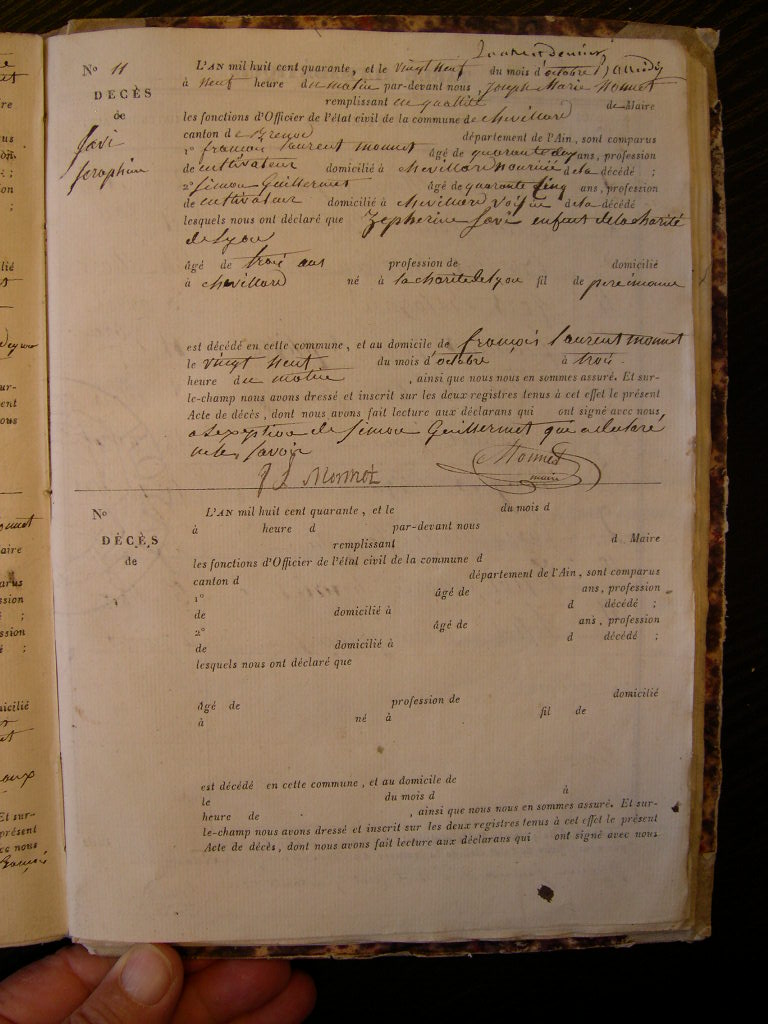 N° 11
L'AN mil huit cent quarante, et le vingt neuf du mois d'octobre
DÉCÈS
à neuf heure du matin par-devant nous, joseph Marie Monnet
remplissant en qualité de Maire
de
les fonctions d'Officier de l'état civil de la commune de chevillard
canton de Brenod département de l'Ain, sont comparus
Javi
Seraphine
1° françois laurent monnet âgé de quarante ans, profession
de cultivateur domicilié à chevillard de la décédé ;
2° Simon Guillermet âgé de quarante cinq ans, profession
de cultivateur domicilié à chevillard voisin de la décédé
lesquels nous ont déclaré que Zepherine Javi enfant de la charité
de Lyon
âgé de trois ans profession de domicilié
à chevillard né à la charité de Lyon fil de père inconnu
est décédé en cette commune, et au domicile de françois laurent monnet
le vingt neuf du mois d'octobre à trois
heure du matin , ainsi que nous nous en sommes assuré. Et sur-
le-champ nous avons dressé et inscrit sur les deux registres tenus à cet effet le présent
Acte de décès, dont nous avons fait lecture aux déclarans qui ont signé avec nous,
a l'exeption de Simon Guillermet qui a declaré
ne le savoir
Monnet
Monnet
maire
N°
L'AN mil huit cent quarante, et le du mois d
DÉCÈS
à heure d par-devant nous
remplissant d Maire
de
les fonctions d'Officier de l'état civil de la commune d
canton d département de l'Ain, sont comparus
1° âgé de ans, profession
de domicilié à d décédé ;
2° âgé de ans, profession
de domicilié à d décédé ;
lesquels nous ont déclaré que
âgé de profession de domicilié
à né à fil de
est décédé en cette commune, et au domicile de
le du mois d à
heure de , ainsi que nous nous en sommes assuré. Et sur-
le-champ nous avons dressé et inscrit sur les deux registres tenus à cet effet le présent
Acte de décès, dont nous avons fait lecture aux déclarans qui ont signé avec nous